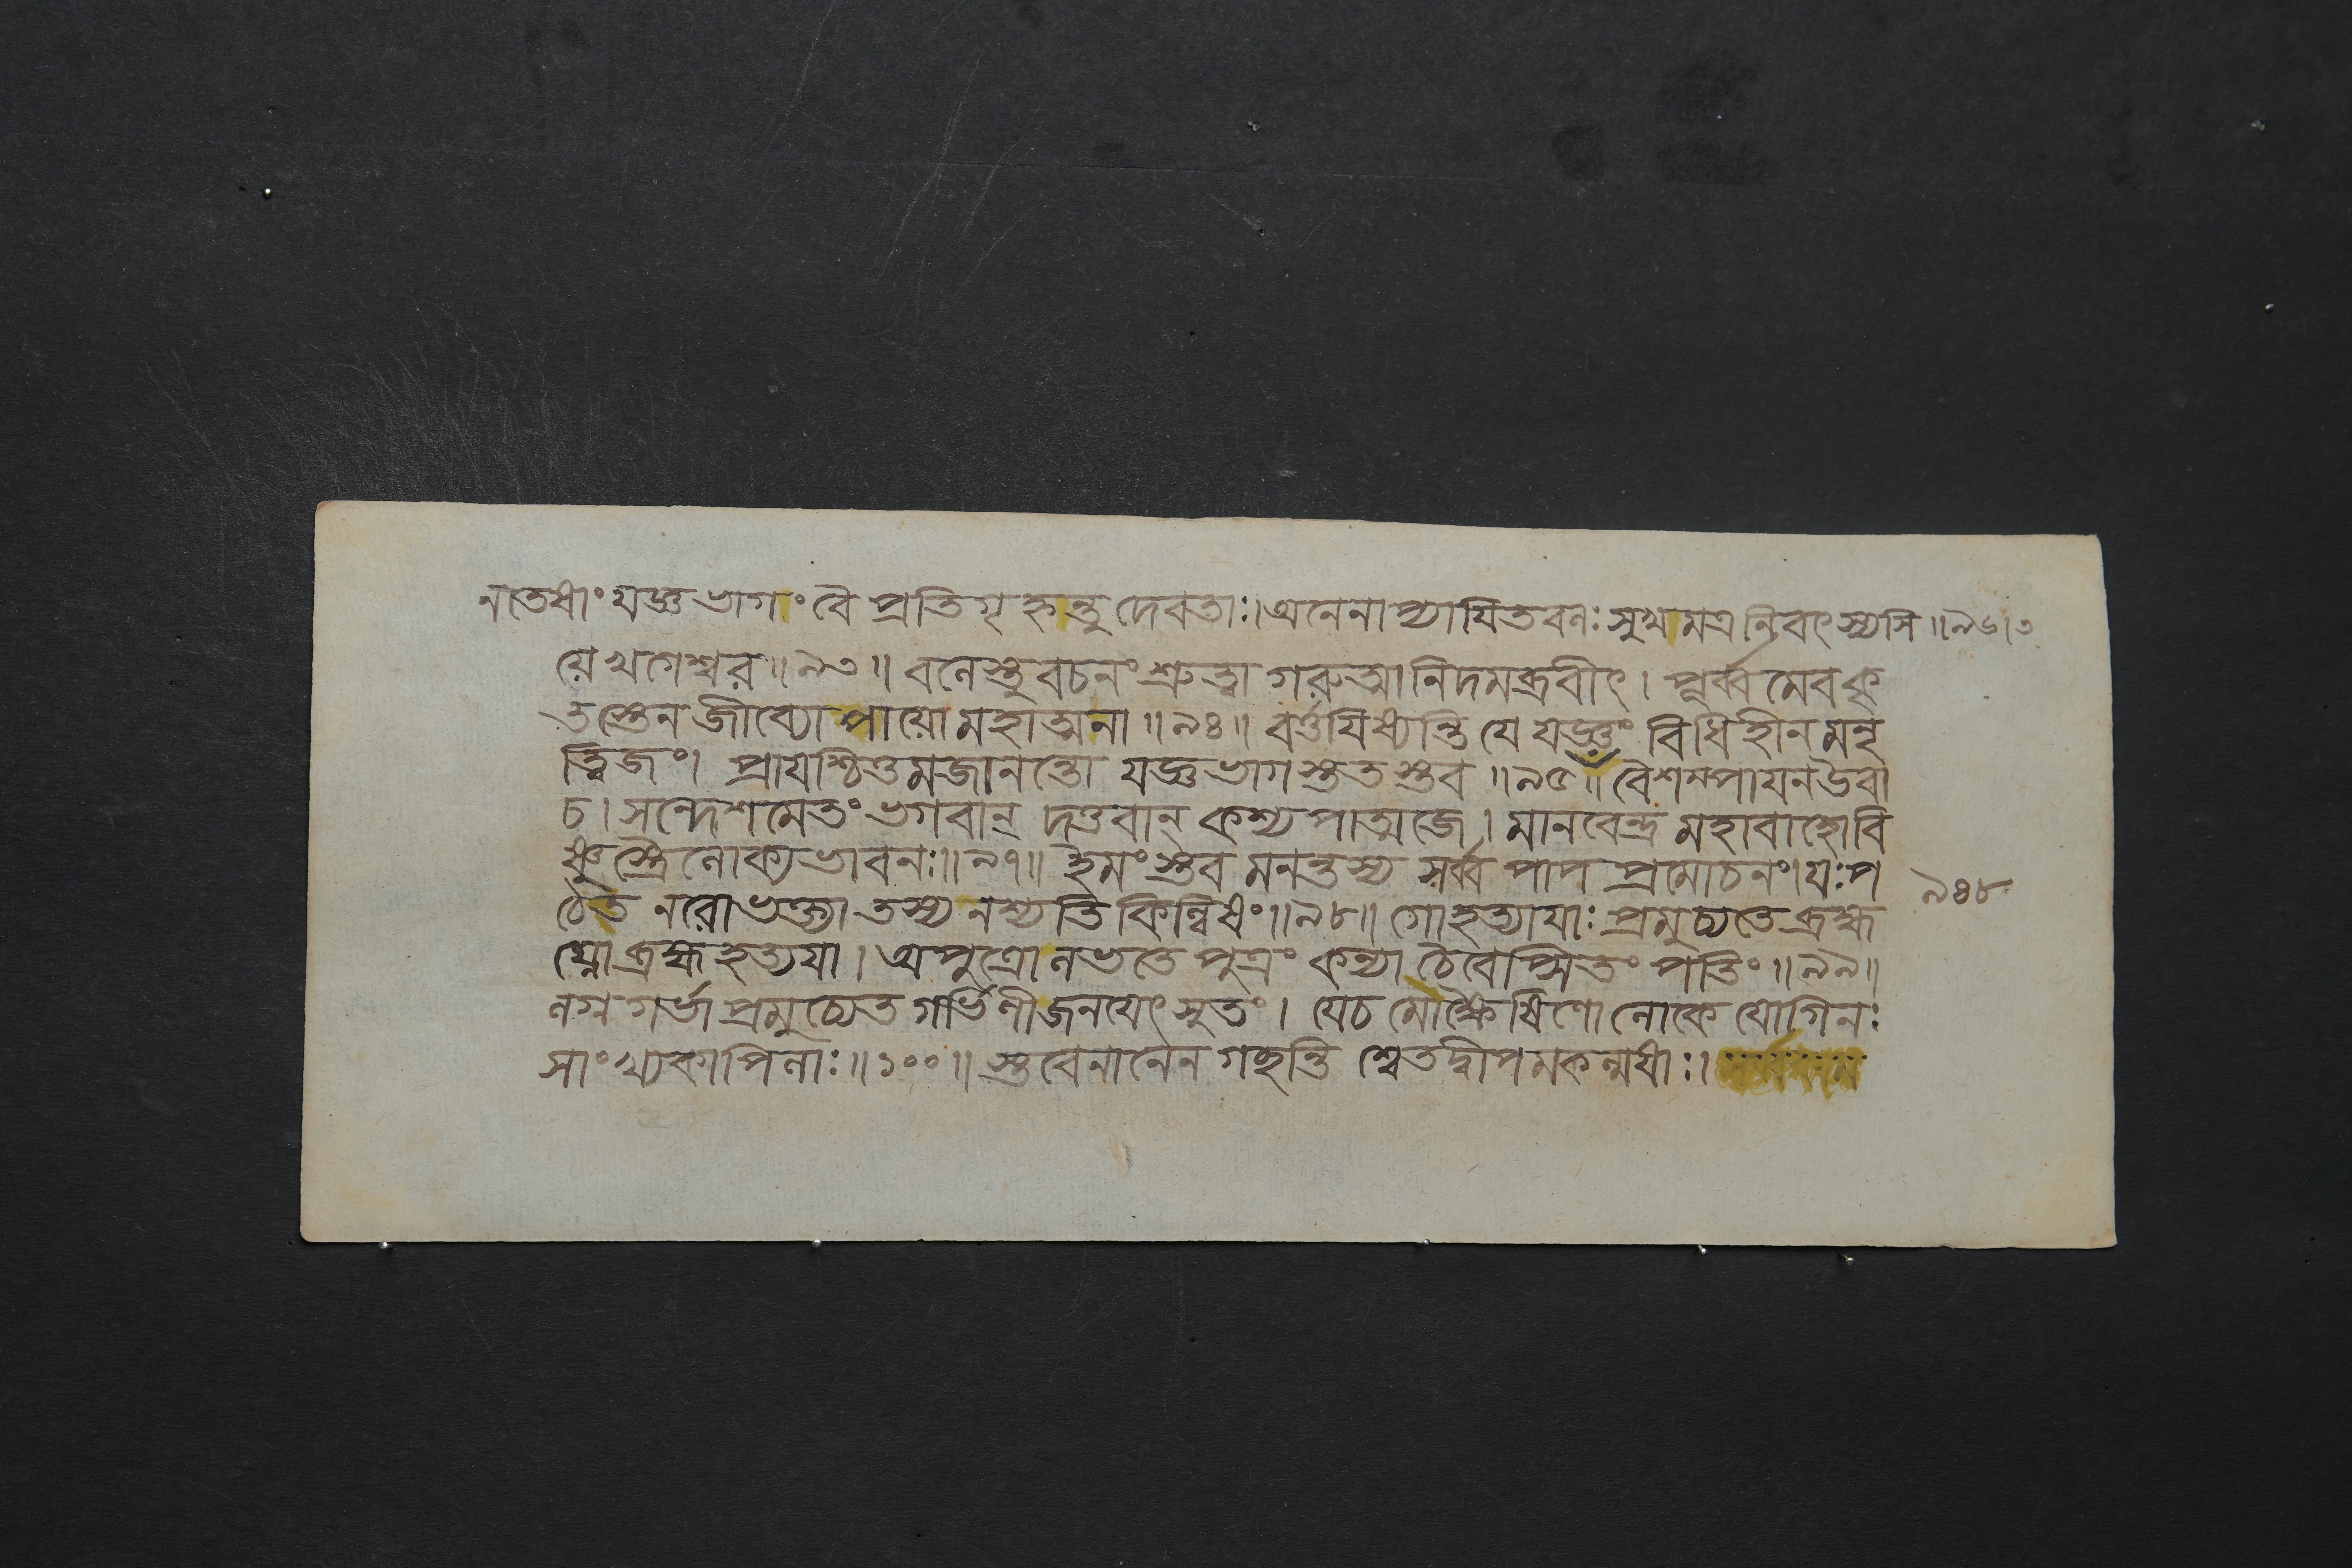 ন তেষাং যজ্ঞভাগং বৈ প্রতিগৃহ্নন্তু দেবতাঃ। অনেনাপ্যায়িতবলঃ সুখমত্র নিবৎস্যসি॥৯৬।৩
য়ে খগেশ্বর॥৯৩॥ বলেস্তু বচনং শ্রুত্বা গরুত্মানিদমব্রবীৎ। পূর্ব্বমেব কৃ
তস্তেন জীব্যোপায়ো মহাত্মনা॥৯৪॥ বর্ত্তয়িষ্যন্তি যে যজ্ঞং বিধিহীনমনৃ
ত্বিজং। প্রায়শ্চিত্তমজানন্তো যজ্ঞভাগস্ততস্তব॥৯৫॥ বৈশম্পায়ন উবা
চ। সন্দেশমেতং ভগবান্ দত্তবান্ কশ্যপাত্মজে। মানবেন্দ্র মহাবাহো বি
ষ্ণুস্ত্রৈলোক্যভাবনঃ॥৯৭॥ ইমং স্তবমনন্তস্য সর্ব্বপাপপ্রমোচনং। যঃ প
ঠেত নরো ভক্ত্যা তস্য নশ্যতি কিল্বিষং॥৯৮॥ গোহত্যায়াঃ প্রমুচ্যতে ব্রহ্ম
৯৪৮
ঘ্নো ব্রহ্মহত্যয়া। অপুত্রো লভতে পুত্রং কন্যা চৈবেপ্সিতং পতিং॥৯৯॥
লগ্নগর্ভা প্রমুচ্যেত গর্ভিণী জনয়েৎ সুতং। যে চ মোক্ষৈষিণো লোকে যোগিনঃ
সাংখ্যকাপিলাঃ॥১০০॥ স্তবেনানেন গচ্ছন্তি শ্বেতদ্বীপমকল্মষাঃ।